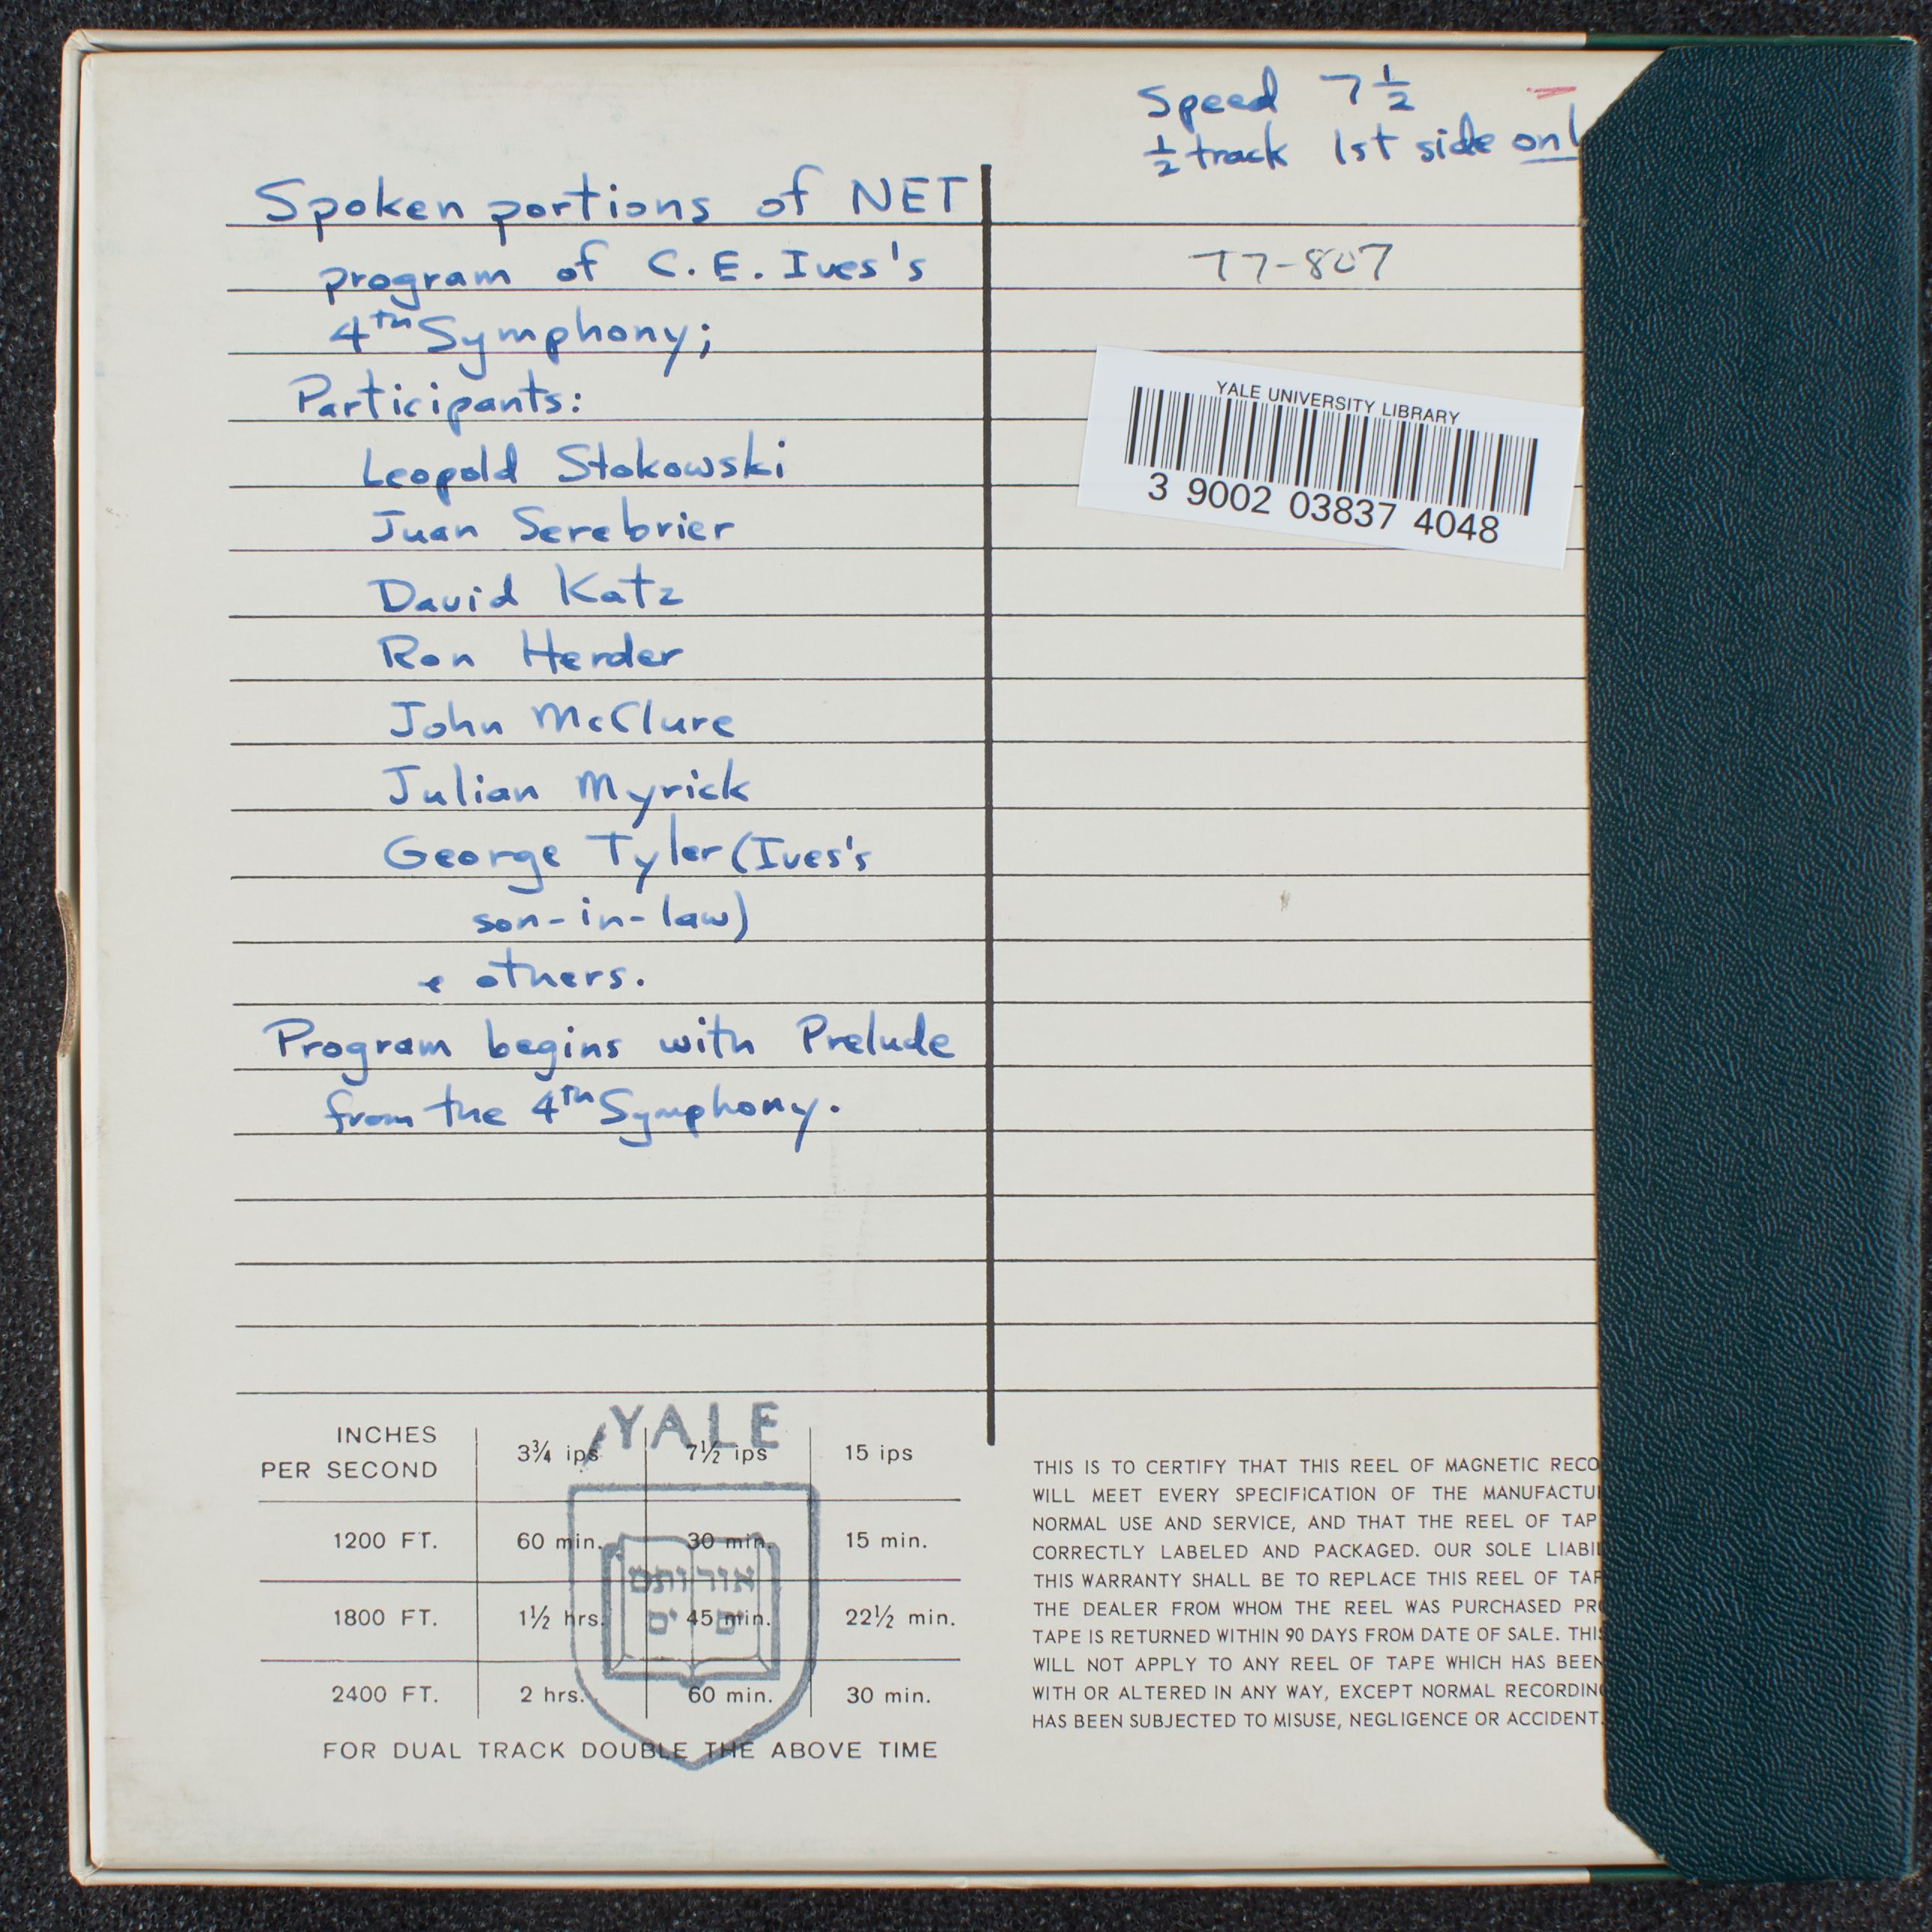 Speed 7 1/2
1/2 track 1st side onl
Spoken portions of NET
program of C.E. Ives's
4th Symphony;
Participants:
Leopold Stokowski
Juan Serebrier
David Katz
Ron Herder
John McClure
Julian Myrick
George Tyler (Ives's
son-in-law)
& others.
Program begins with Prelude
from the 4th Symphony.
T7-807
YALE UNIVERSITY LIBRARY
3 9002 03837 4048
YALE
INCHES PER SECOND 3¾ ips 7½ ips 15 ips
1200 FT. 60 min. 30 min. 15 min.
1800 FT. 1½ hrs. 45 min. 22½ min.
2400 FT. 2 hrs. 60 min. 30 min.
FOR DUAL TRACK DOUBLE THE ABOVE TIME
אור ותם
ים ים
THIS IS TO CERTIFY THAT THIS REEL OF MAGNETIC RECO
WILL MEET EVERY SPECIFICATION OF THE MANUFACTU
NORMAL USE AND SERVICE, AND THAT THE REEL OF TAP
CORRECTLY LABELED AND PACKAGED. OUR SOLE LIABI
THIS WARRANTY SHALL BE TO REPLACE THIS REEL OF TAP
THE DEALER FROM WHOM THE REEL WAS PURCHASED PR
TAPE IS RETURNED WITHIN 90 DAYS FROM DATE OF SALE. THIS
WILL NOT APPLY TO ANY REEL OF TAPE WHICH HAS BEEN
WITH OR ALTERED IN ANY WAY, EXCEPT NORMAL RECORDIN
HAS BEEN SUBJECTED TO MISUSE, NEGLIGENCE OR ACCIDENT.